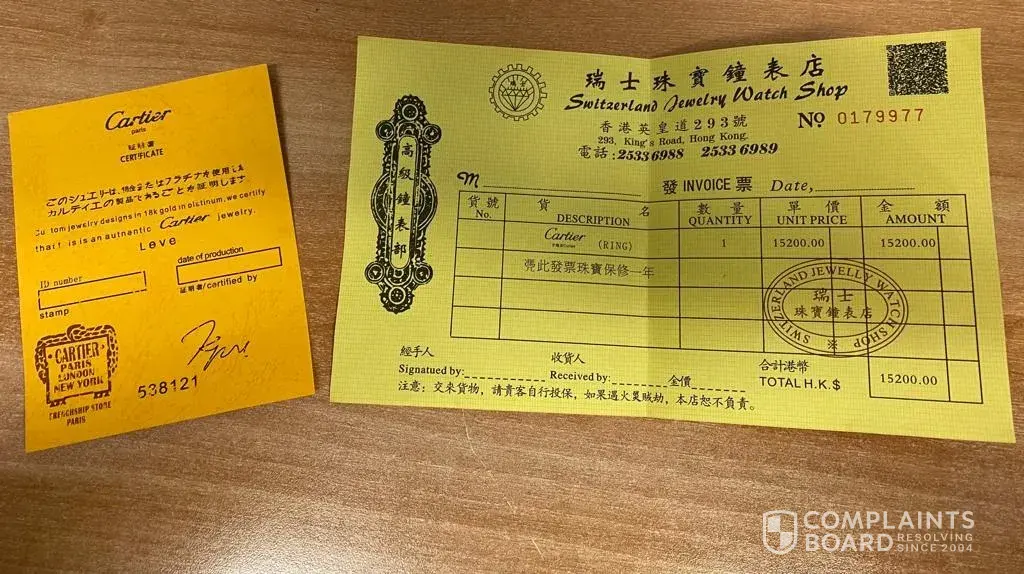 Cartier
paris
証明書
CERTIFICATE
このジュエリーは、18金またはプラチナを使用した
カルティエの製品であることを証明します
jewelry designs in 18k gold in olctinum, we certify
is is an autnantic Cartier jewelry.
Love
ID number
date of production
stamp
証明者/certified by
CARTIER
PARIS
LONDON
NEW YORK
FRENCHSHIP STORE
PARIS
538121
瑞士珠寶鐘表店
Switzerland Jewelry Watch Shop
香港英皇道293號
293, King's Road, Hong Kong.
電話:2533 6988 2533 6989
No 0179977
高級鐘表部
M
發 INVOICE 票 Date,
貨號 貨名 數量 單價 金額
No. DESCRIPTION QUANTITY UNIT PRICE AMOUNT
Cartier (RING) 1 15200.00 15200.00
凭此發票珠寶保修一年
SWITZERLAND JEWELLY WATCH SHOP
瑞士
珠寶鐘表店
經手人 收貨人 合計港幣
Signatued by: Received by: 金價 TOTAL H.K.$ 15200.00
注意：交來貨物，請貴客自行投保，如果遇火災賊劫，本店恕不負責。
COMPLAINTS
BOARD RESOLVING
SINCE 2004